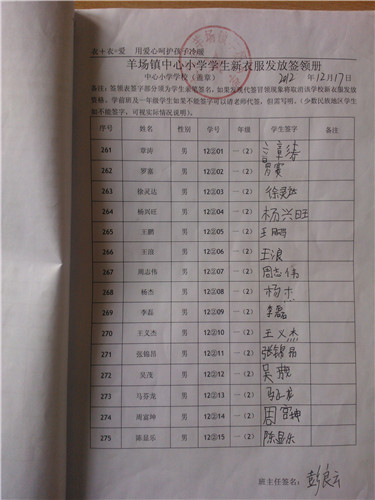 衣+衣=爱 用爱心呵护孩子冷暖
羊场镇中心小学学生新衣服发放签领册
中心小学学校（盖章） 2012 年 12月 17日
备注：签领表签字部分须为学生亲笔签名，如果发现代签冒领现象将取消该学校新衣服发放
资格。学前班及一年级学生如果不能签字可以请老师代签，但需写明。（少数民族地区学生
如不能签字，可视实际情况说明）。
序号 姓名 性别 学号 班级 学生签字 备注
261 章涛 男 12②01 一（2） 章涛
262 罗赛 男 12②02 一（2）
263 徐灵达 男 12②03 一（2） 徐灵达
264 杨兴旺 男 12②04 一（2） 杨兴旺
265 王鹏 男 12②05 一（2） 王鹏
266 王浪 男 12②06 一（2） 王浪
267 周志伟 男 12②07 一（2） 周志伟
268 杨杰 男 12②08 一（2） 杨杰
269 李磊 男 12②09 一（2） 李磊
270 王义杰 男 12②10 一（2） 王义杰
271 张锦昌 男 12②11 一（2） 张锦昌
272 吴茂 男 12②12 一（2） 吴
273 马芬龙 男 12②13 一（2）
274 周富坤 男 12②14 一（2） 周富坤
275 陈显乐 男 12②15 一（2） 陈显乐
班主任签名： 彭良云